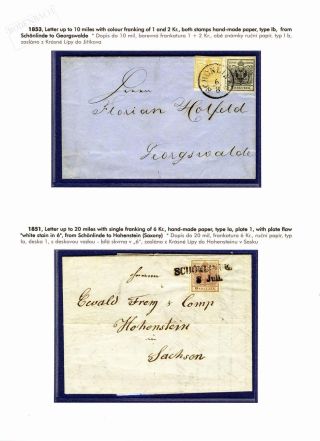 1853, Letter up to 10 miles with colour franking of 1 and 2 Kr., both stamps hand-made paper, type Ib, from
Schönlinde to Georgswalde * Dopis do 10 mil, barevna frankatura 1 + 2 Kr., obě známky ruční papír, typ I b,
zasláno z Krásné Lípy do Jiříkova
Herrn
Florian Holfeld
Georgswalde
1851, Letter up to 20 miles with single franking of 6 Kr., hand-made paper, type Ia, plate 1, with plate flaw
"white stain in 6", from Schönlinde to Hohenstein (Saxony) * Dopis do 20 mil, frankatura 6 Kr., ruční papír, typ
Ia, deska 1, s deskovou vadou - bílá skvrna v „6", zasláno z Krásné Lípy do Hohensteinu v Sasku
SCHÖNLINDE
Jul.
Herrn
Ewald Frey & Comp
Hohenstein
in
Sachsen